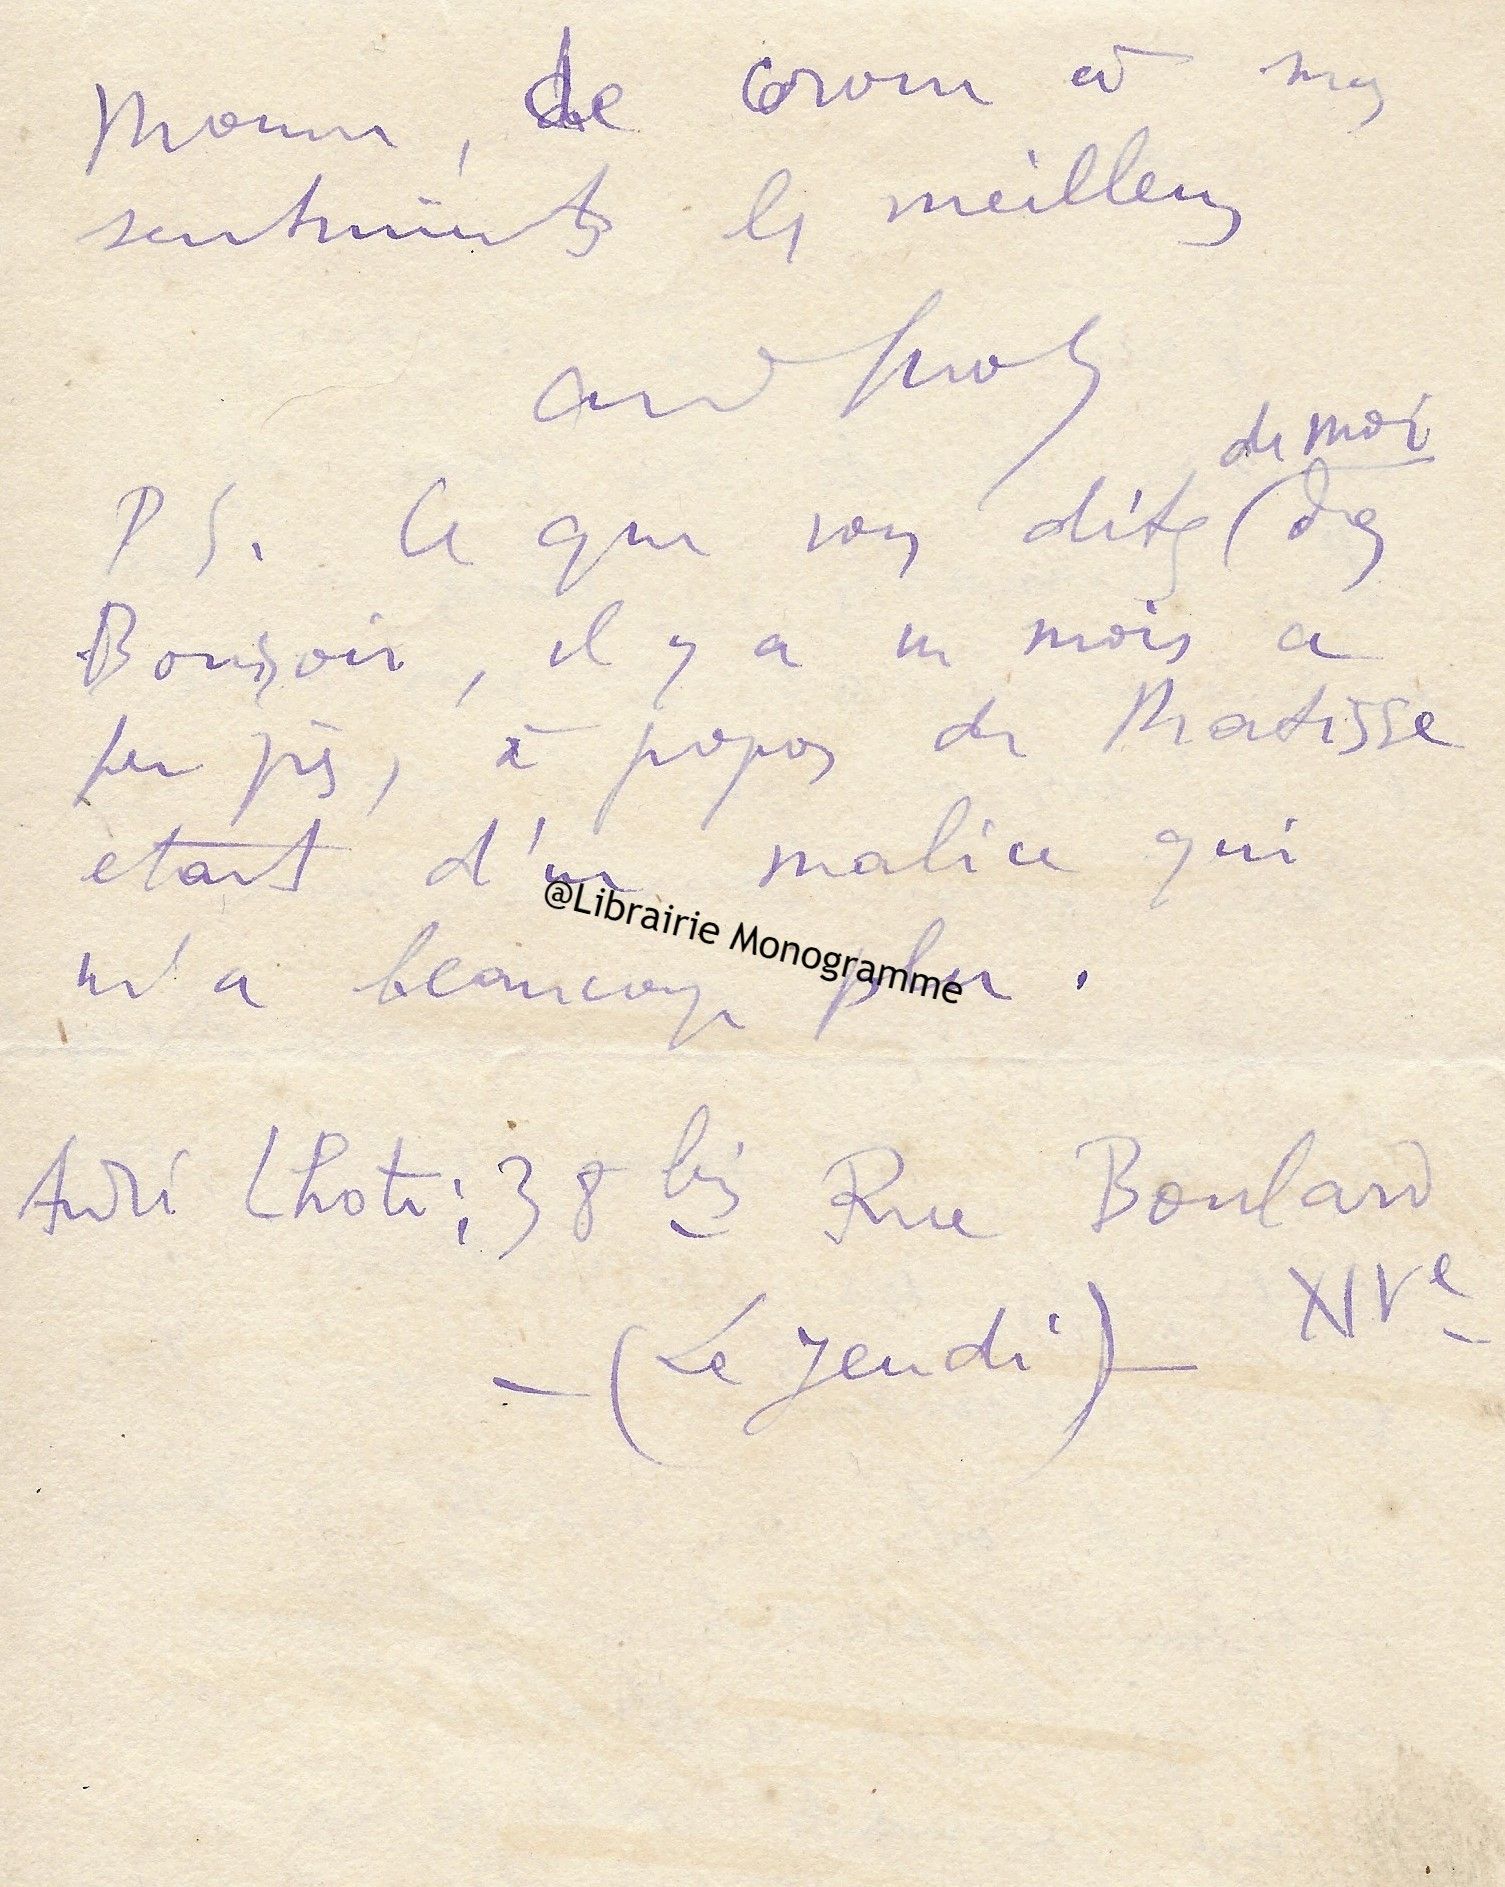 Monsieur, de croire à mes
sentiments les meilleurs
André Lhote
de moi
PS. Ce que vous dites (dans
Bonsoir, il y a un mois a
peu près, à propos de Matisse
etait d'une malice qui
m'a beaucoup plu.
@Librairie Monogramme
André Lhote; 38 bis Rue Boulard
XIVe
— (Le Jeudi) —